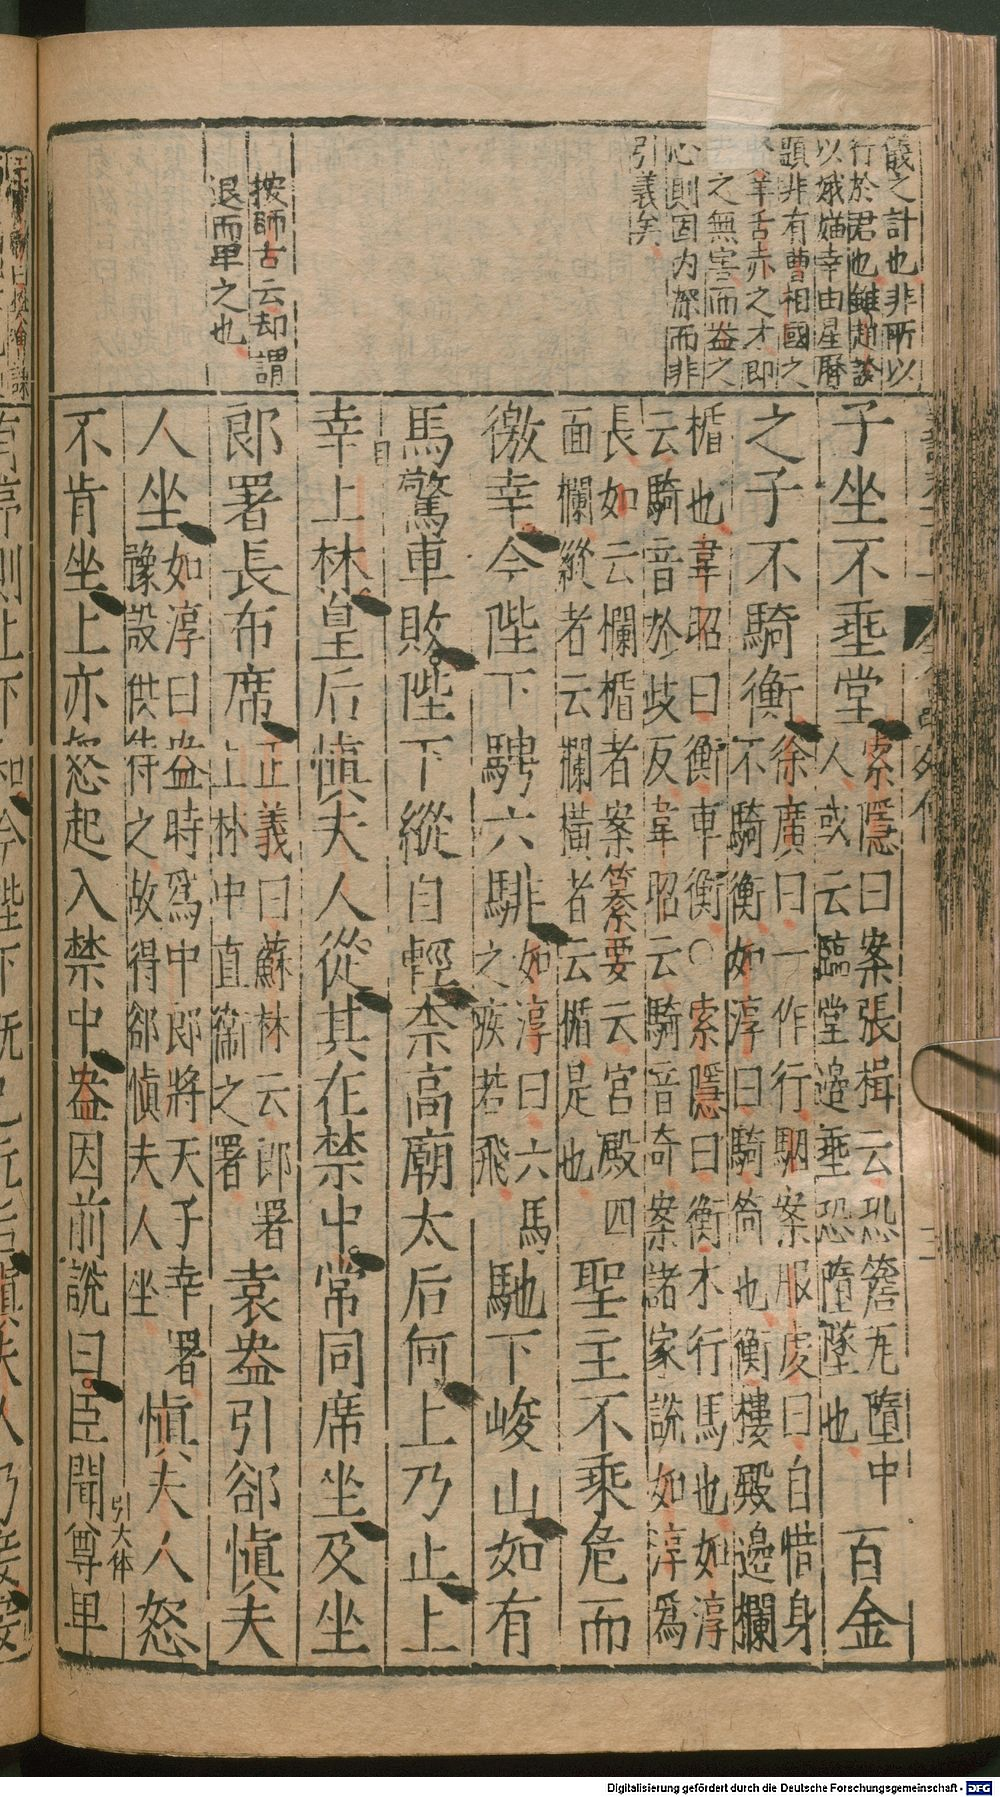 儀之計也非所以
行於君也雖趙談
以娥媌幸由星曆
顯非有曹相國之
羊舌赤之才即
之無害而盎之
心則固内深而非
引義矣
按師古云却謂
退而卑之也
子坐不垂堂
索隱曰案張揖云恐簷瓦墮中
人或云臨堂邉垂恐墮墜也
百金
之子不騎衡
徐廣曰一作行駰案服虔曰自惜身
不騎衡如淳曰騎倚也衡樓殿邊欄
楯也韋昭曰衡車衡○索隱曰衡木行馬也如淳
云騎音於歧反韋昭云騎音奇案諸家說如淳爲
長如云欄楯者案纂要云宮殿四
面欄縱者云欄橫者云楯是也
聖主不乘危而
徼幸今陛下騁六騑
如淳曰六馬
之疾若飛
馳下峻山如有
馬驚車敗陛下縱自輕柰高廟太后何上乃止上
幸上林皇后慎夫人從其在禁中常同席坐及坐
郎署長布席
正義曰蘇林云郎署
上林中直衞之署
袁盎引郤慎夫
人坐
如淳曰盎時爲中郎將天子幸署
豫設供待之故得郤慎夫人坐
慎夫人怒
引大体
不肯坐上亦怒起入禁中盎因前說曰臣聞尊卑
Digitalisierung gefördert durch die Deutsche Forschungsgemeinschaft - DFG